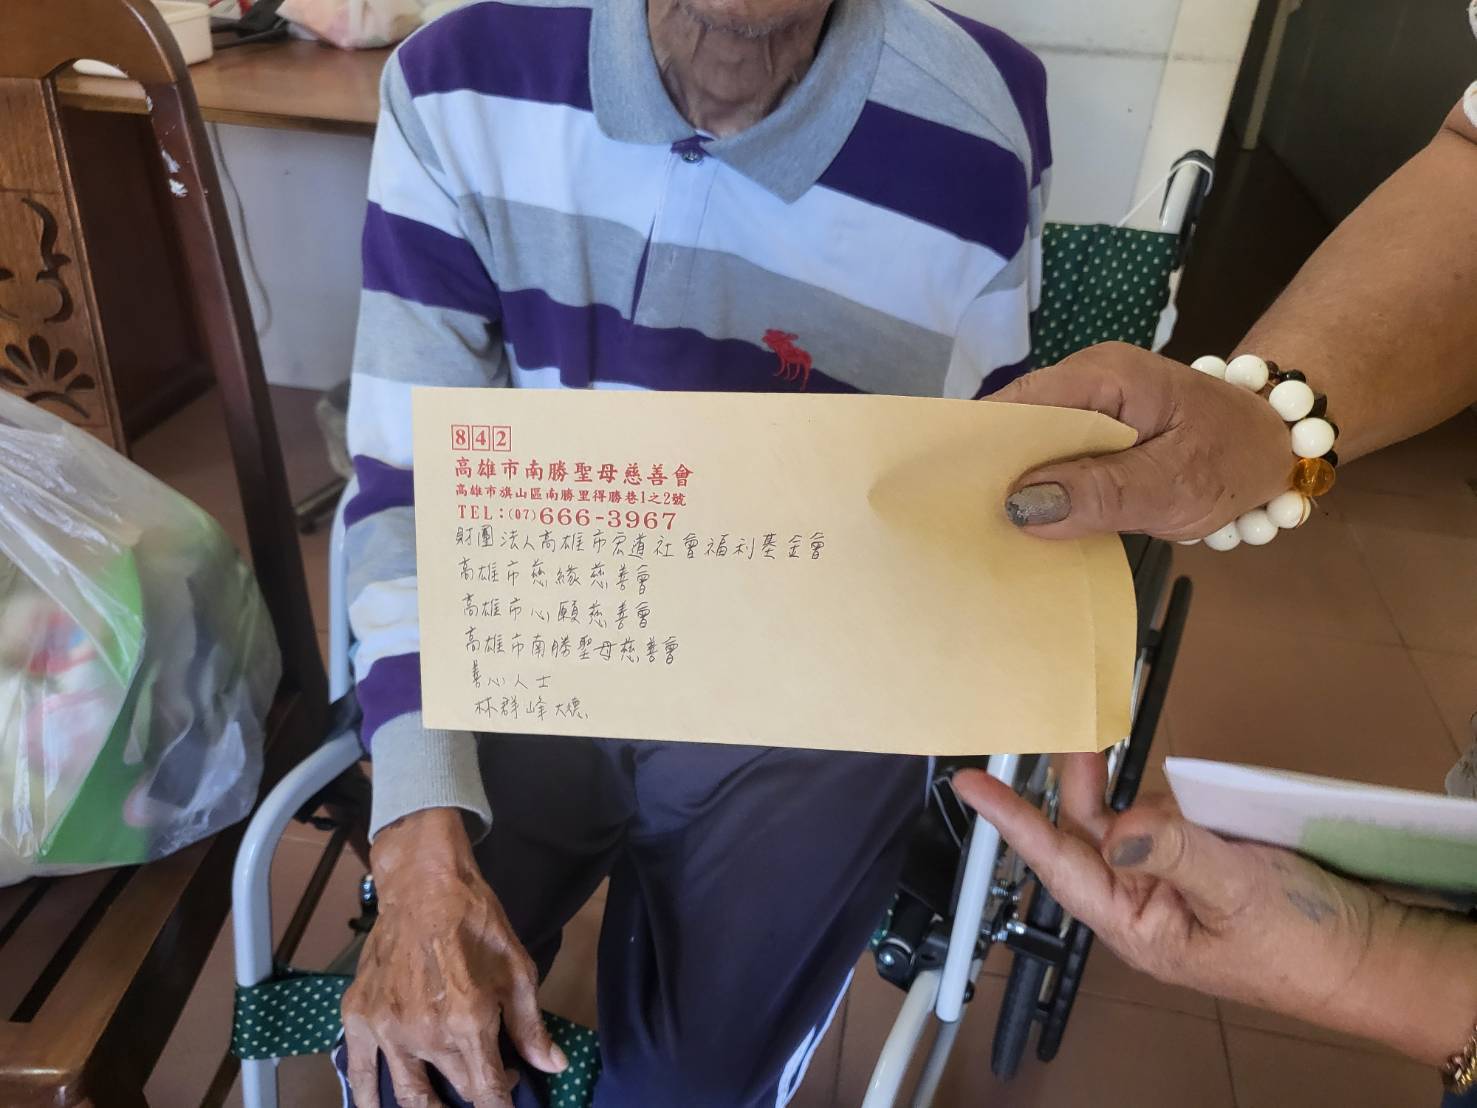 842
高雄市南勝聖母慈善會
高雄市旗山區南勝里得勝巷1之2號
TEL:(07)666-3967
財團法人高雄市宏道社會福利基金會
高雄市慈緣慈善會
高雄市心願慈善會
高雄市南勝聖母慈善會
善心人士
林群峰大德